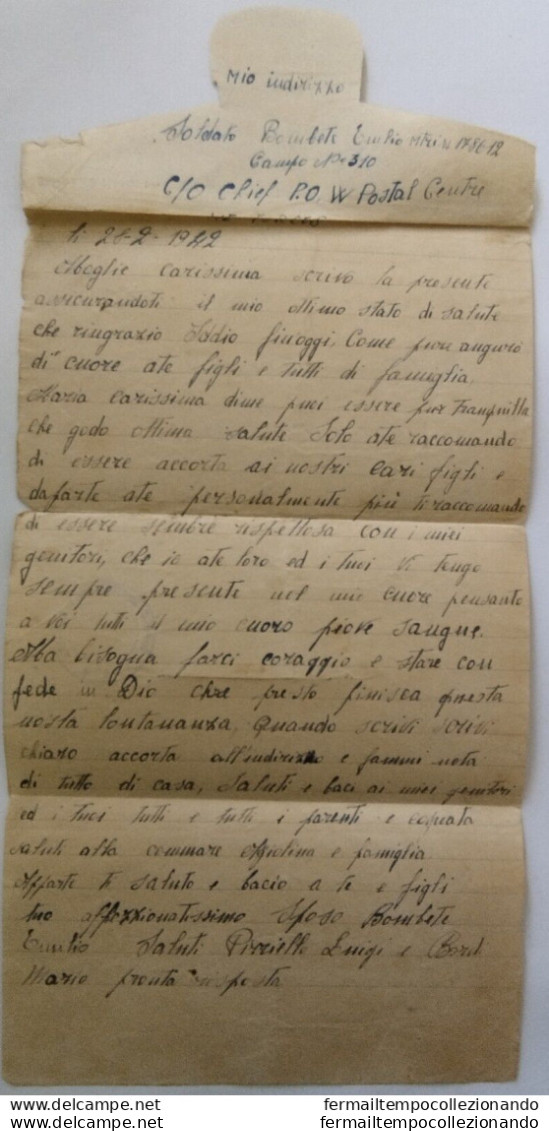 Mio indirizzo
Soldato Bombete Emilio
Campo No 310
C/O Chief P.O.W Postal Centre
li 28-2-1942
Moglie carissima scrivo la presente
assicurandoti il mio ottimo stato di salute
che ringrazio Iddio finoggi. Come pure auguro
di cuore ate figli e tutti di famuglia.
Maria Carissima dime puoi essere pur tranquilla
che godo ottima salute Solo ate raccomando
di essere accorta ai nostri cari figli e
daparte ate personalmente più ti raccomando
di essere sembre rispettosa con i miei
genitori, che io ate loro ed i tuoi Vi tengo
sempre presente nel mio cuore pensanto
a voi tutti il mio cuoro piove sangue.
Ma bisogna farci coraggio e stare con
fede in Dio che presto finisca questa
nosta lontananza. Quando scrivi scrivi
chiaro accorta all'indirizzo e fammi nota
di tutto di casa, Saluti e baci ai miei genitori
ed i tuoi tutti e tutti i parenti e
saluti alla commare e famiglia
Apparte ti saluto e bacio a te e figli
tuo affezzionatissimo Sposo Bombete
Emilio Saluti Luigi e
Mario pronta risposta
fermailtempocollezionando
fermailtempocollezionando
fermailtempocollezionando
fermailtempocollezionando